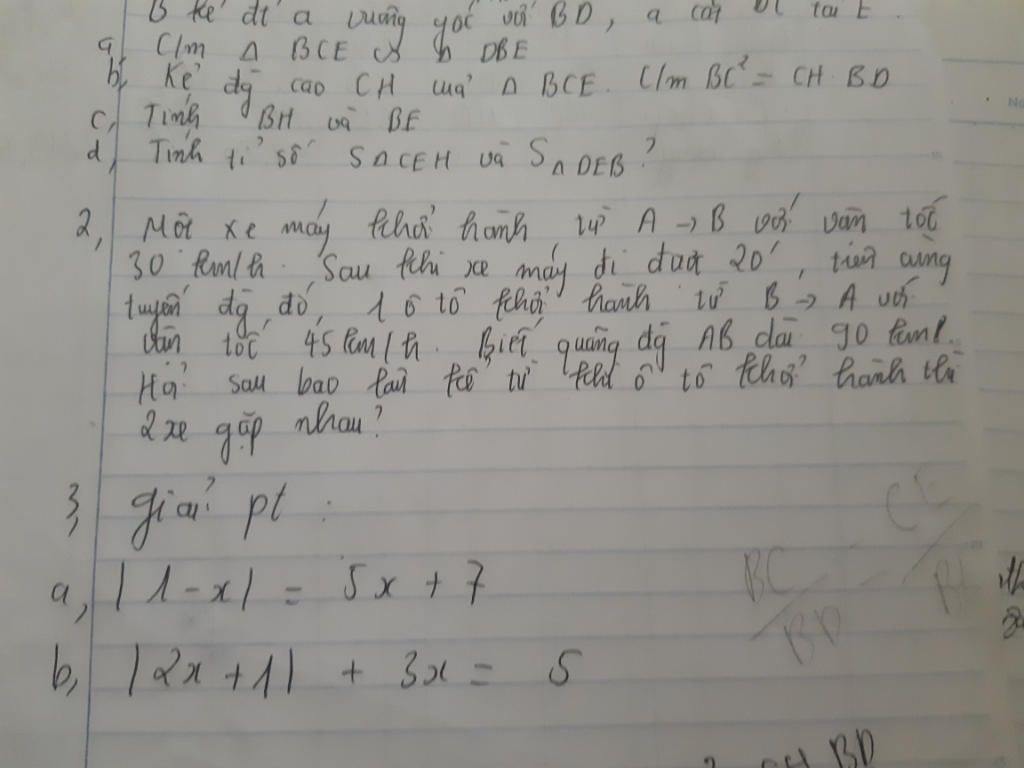 B kẻ đt a vuông góc với BD, a cắt DC tại E.
a, C/m Δ BCE ∽ Δ DBE
b, Kẻ đg cao CH của Δ BCE. C/m BC² = CH. BD
c, Tính BH và BE
d, Tính tỉ số SΔCEH và SΔDEB?
2, Một xe máy khởi hành từ A → B với vân tốc
30 km/h. Sau khi xe máy đi được 20', trên cùng
tuyến đg đó, 1 ô tô khởi hành từ B → A với
vân tốc 45 km/h. Biết quãng đg AB dài 90 km.
Hỏi sau bao lâu kể từ khi ô tô khởi hành thì
2 xe gặp nhau?
3, Giải pt :
a, |1-x| = 5x + 7
b, |2x + 1| + 3x = 5
BC
BD
CE
CH BD